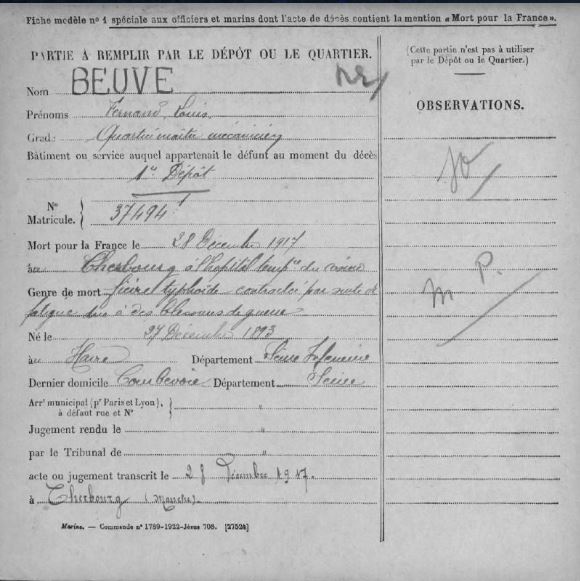 Fiche modèle n° 1 spéciale aux officiers et marins dont l'acte de décès contient la mention « Mort pour la France ».
PARTIE A REMPLIR PAR LE DÉPÔT OU LE QUARTIER.
Nom BEUVE
Prénoms Fernand, Louis.
Grade Quartier maître mécanicien
Bâtiment ou service auquel appartenait le défunt au moment du décès
1er Dépôt
N° Matricule. } 37494
Mort pour la France le 28 Décembre 1917
à Cherbourg à l'hopital temp.re du
Genre de mort fièvre typhoïde contractée par suite de
fatigue
Né le 27 Décembre 1893
au Havre Département Seine Inférieure
Dernier domicile Courbevoie Département Seine
Arr.t municipal (p.r Paris et Lyon), à défaut rue et N° } "
Jugement rendu le "
par le Tribunal de "
acte ou jugement transcrit le 28 Décembre 1917.
à Cherbourg (Manche)
Marine. — Commande n° 1789-1922-Jéras 708. [27524]
(Cette partie n'est pas à utiliser
par le Dépôt ou le Quartier.)
OBSERVATIONS.
M P.